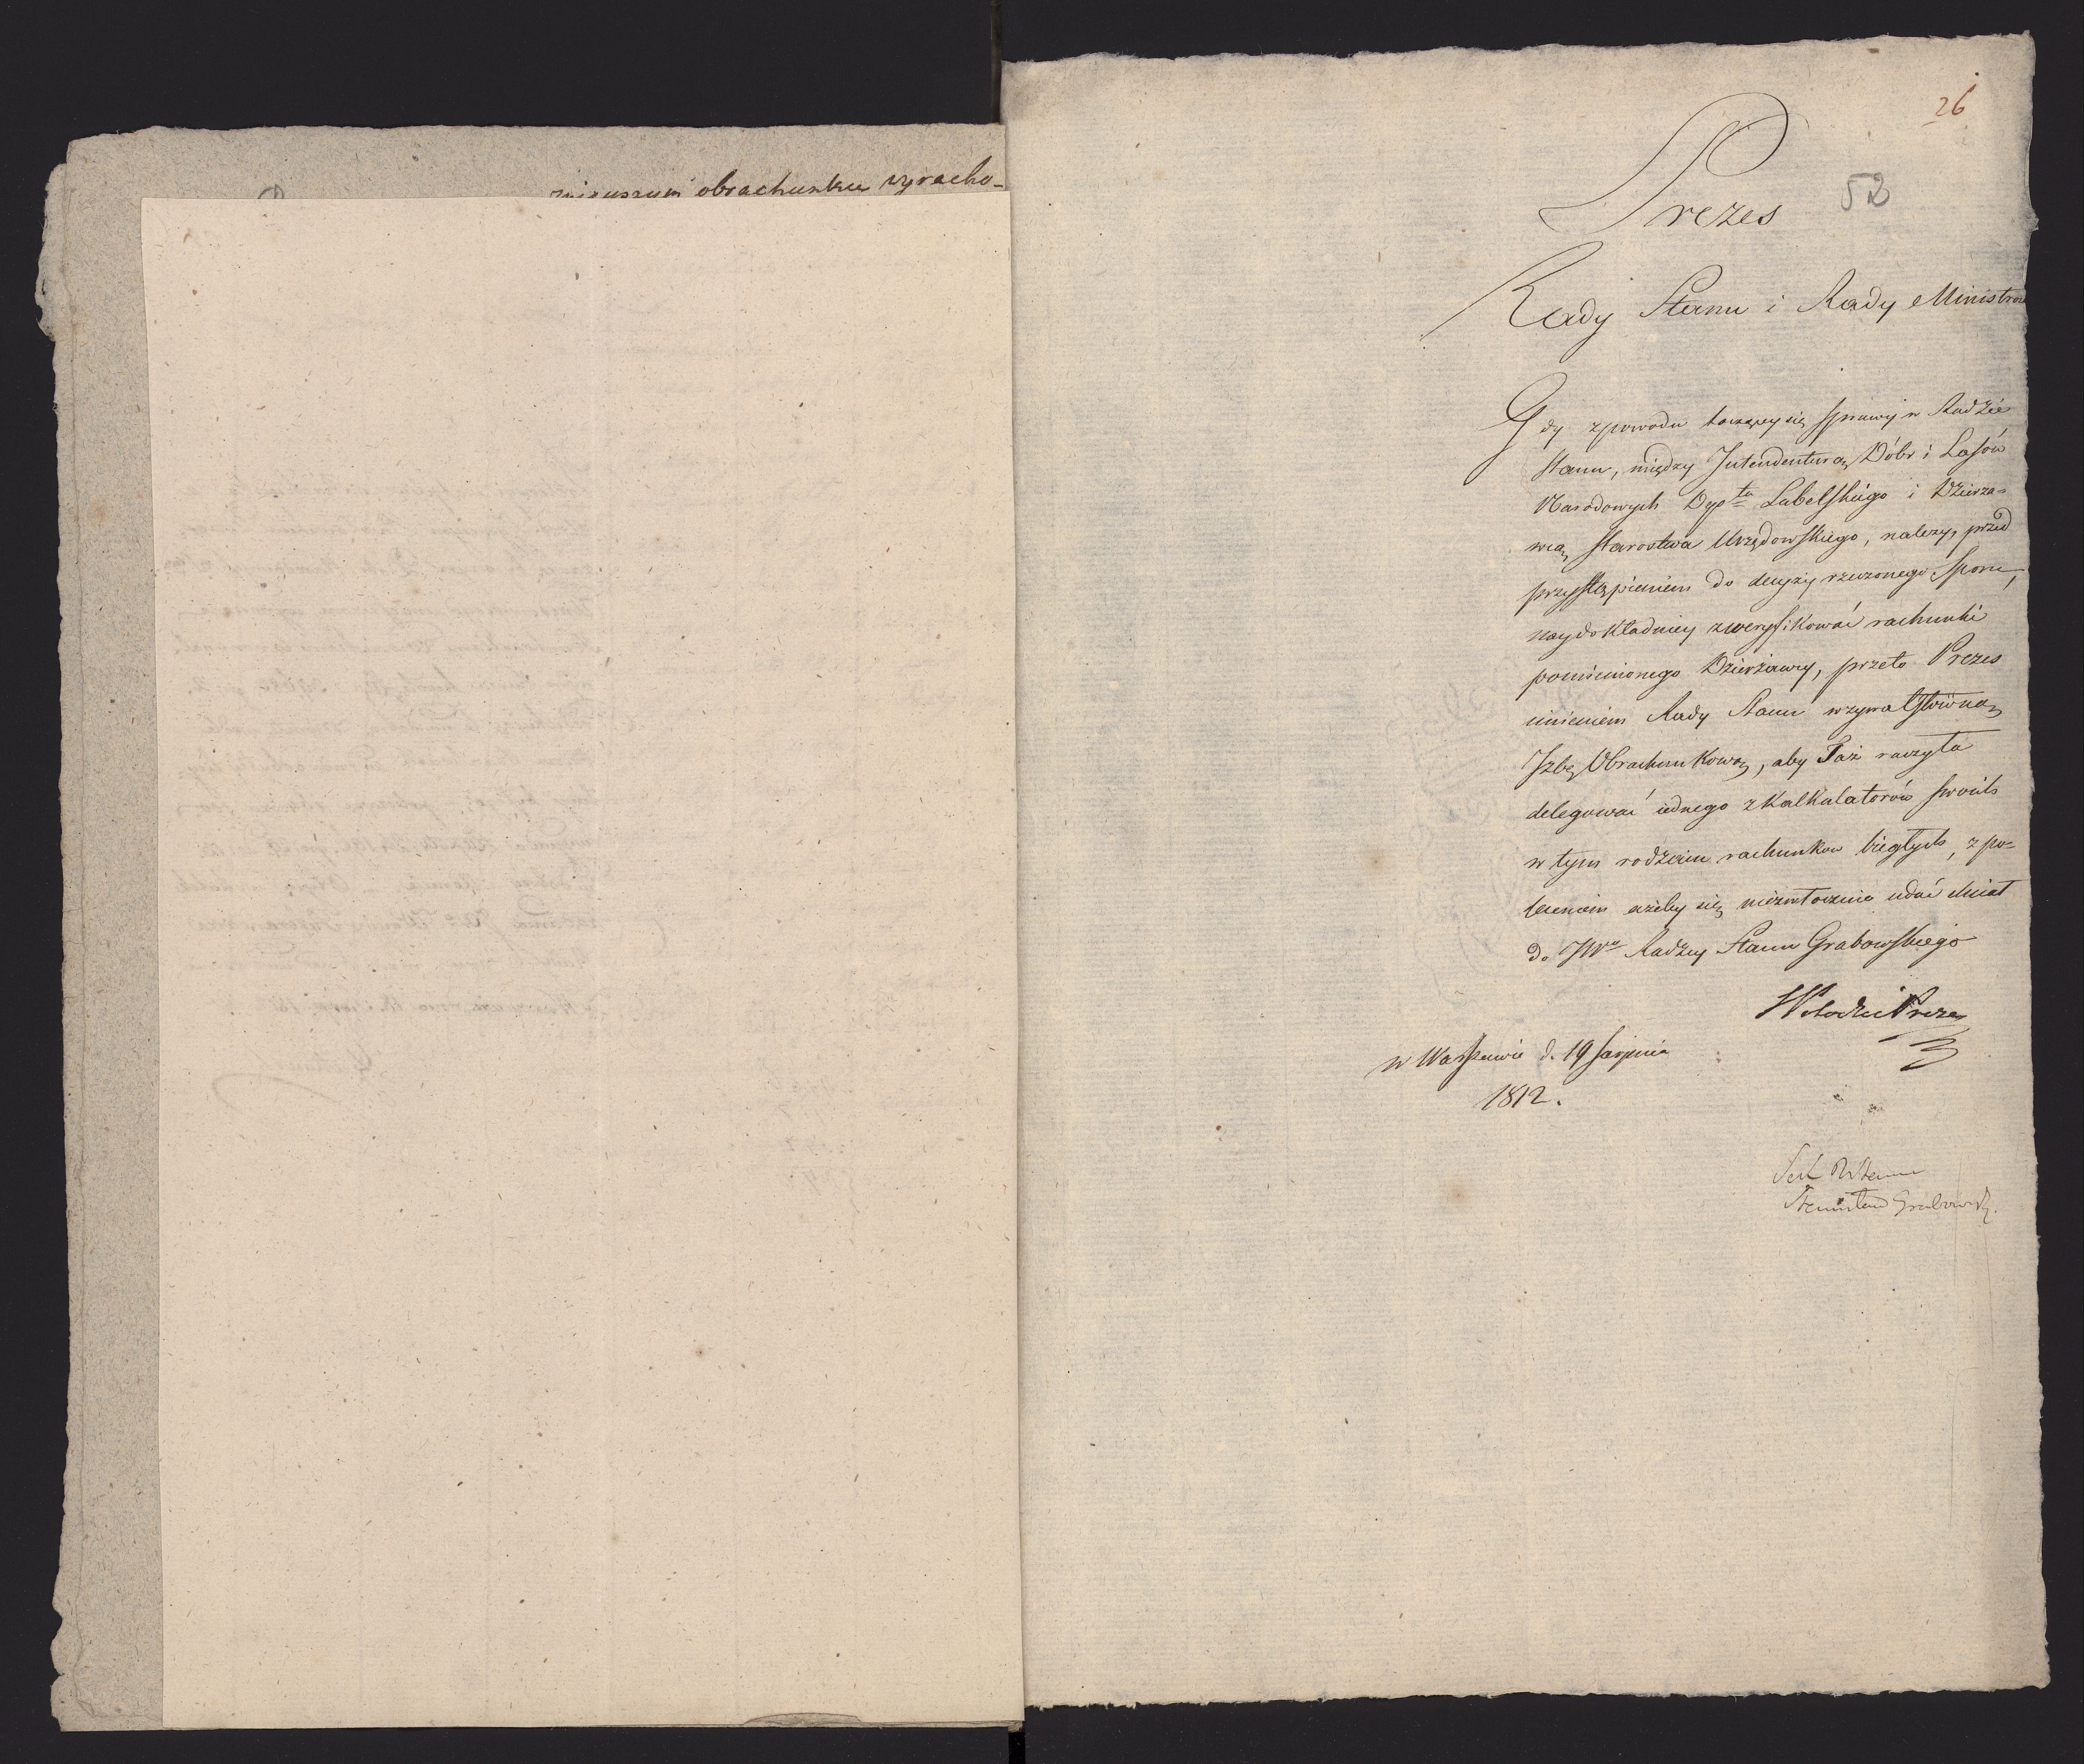 obrachunku wyracho-
26
52
Prezes
Rady Stanu i Rady Ministrów
Gdy z powodu toczącey się sprawy w Radzie
Stanu, między Intendenturą Dóbr i Lasów
Narodowych Dep^tu Lubelskiego i Dzierża-
wcą Starostwa Urzędowskiego, należy, przed
przystąpieniem do decyzyi rzeczonego Sporu,
naydokładniey zweryfikować rachunki
pomienionego Dzierżawcy, przeto Prezes
imieniem Rady Stanu wzywa Główną
Izbę Obrachunkową, aby Taż raczyła
delegować iednego z Kalkulatorów swoich
w tym rodzaiu rachunków biegłych, z po-
leceniem ażeby się niezwłocznie udać chciał
do JW^o Radzcy Stanu Grabowskiego
Prezes
w Warszawie d. 19 Sierpnia
1812.
Sek R Stanu
Stanisław Grabowski.